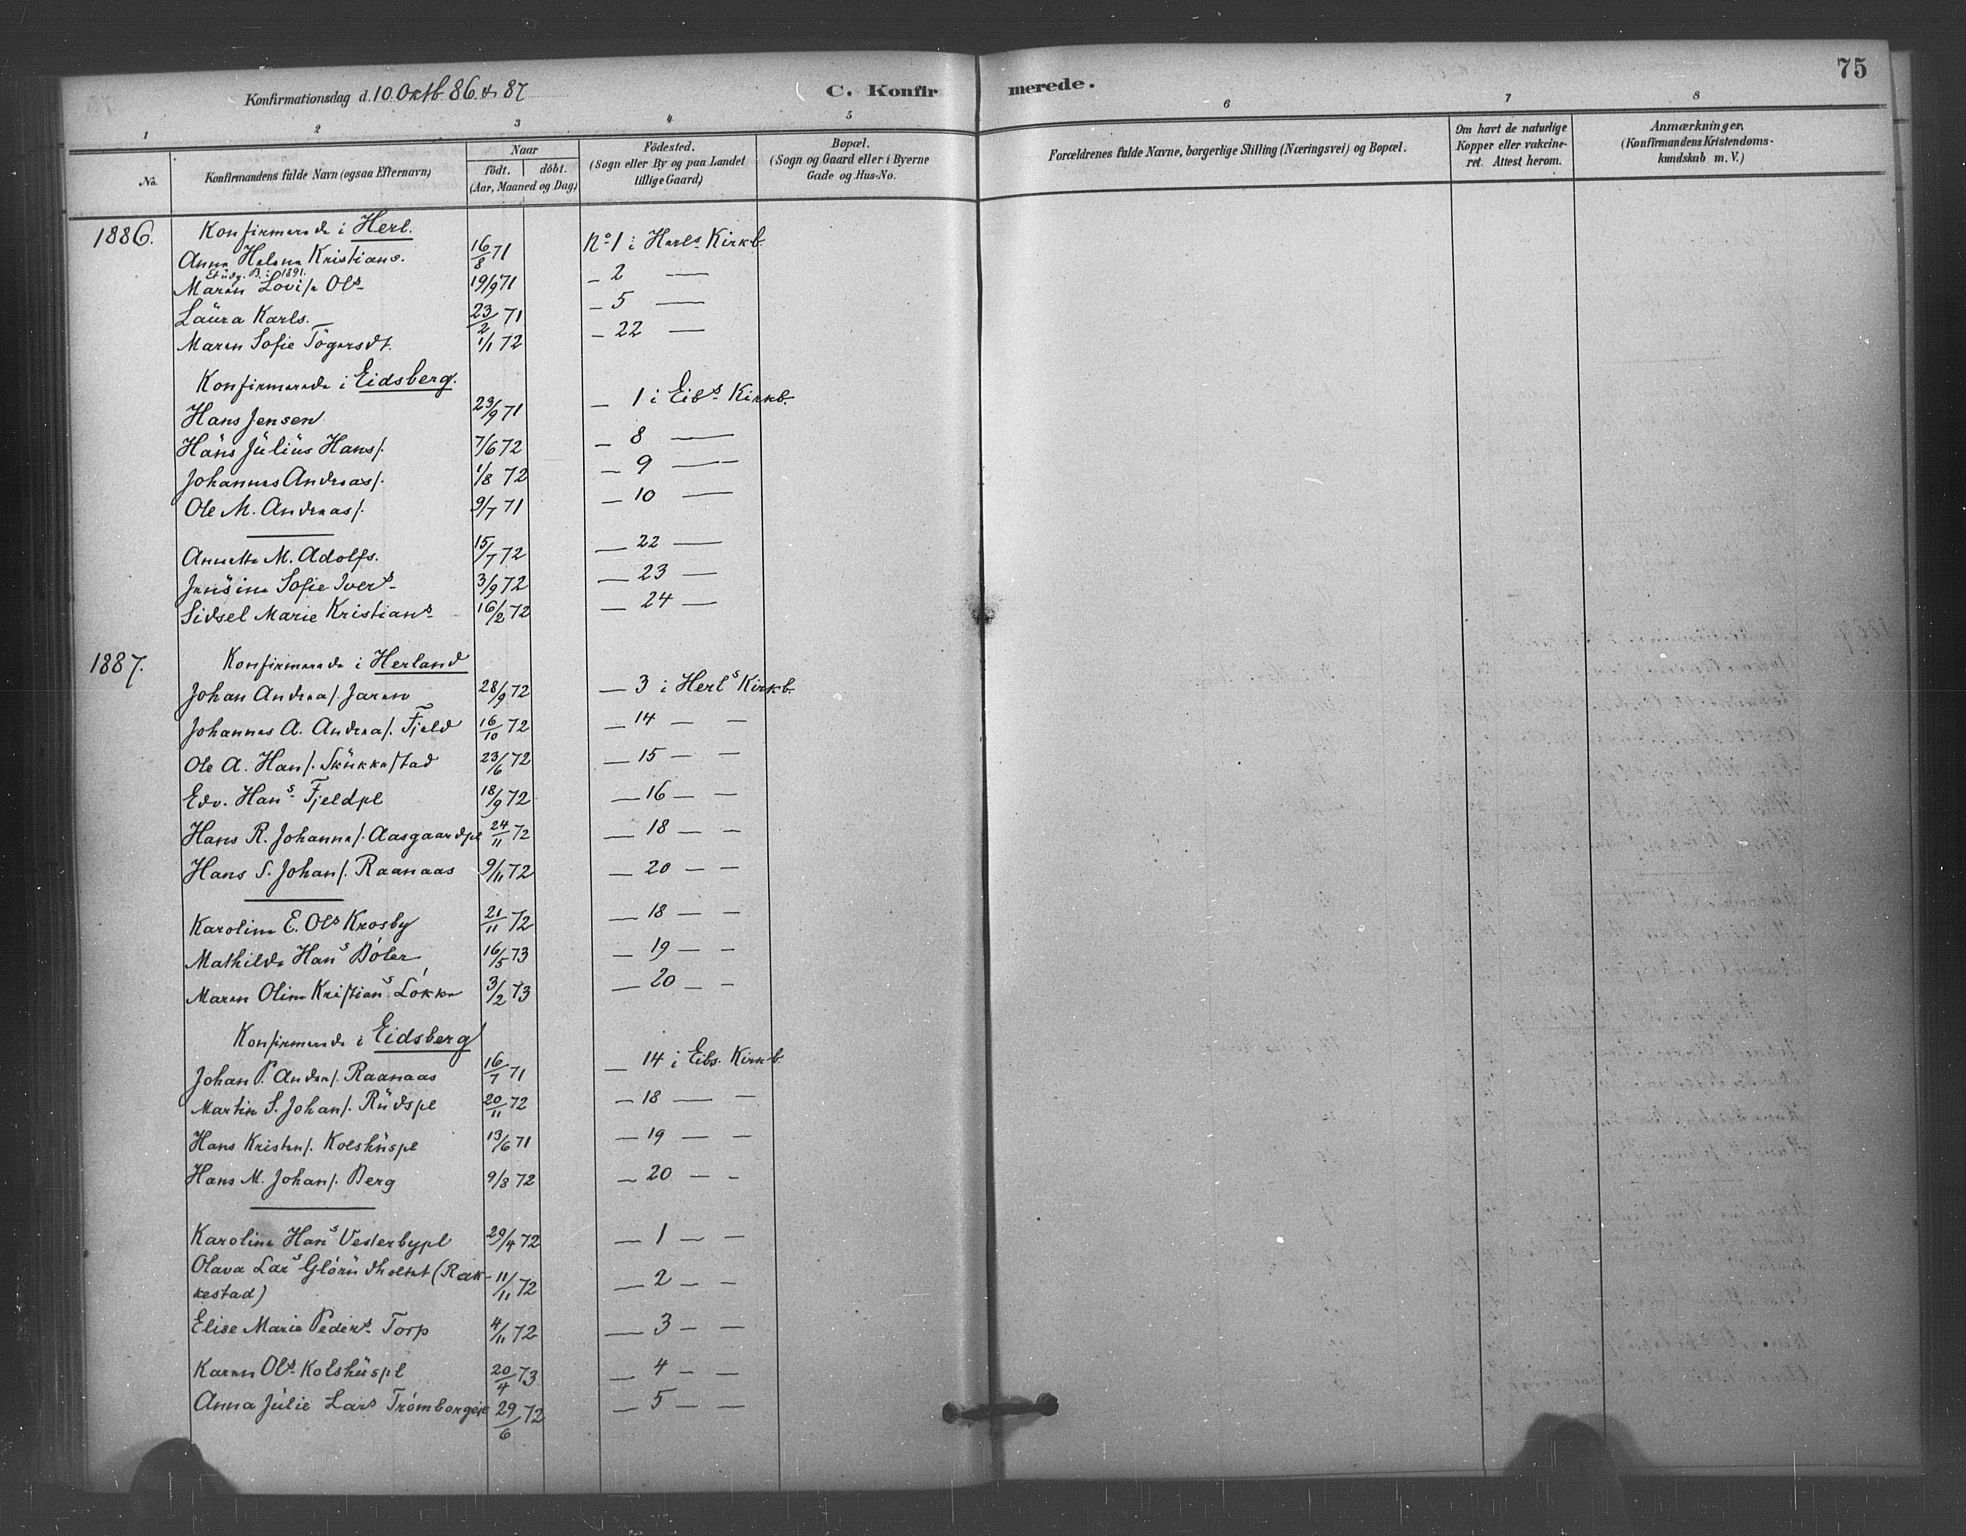 75
Konfirmationsdag d. 10. Oktb 86. & 87
C. Konfirmerede.
1 2 3 4 5 6 7 8
No.
Konfirmandens fulde Navn (ogsaa Efternavn)
Naar
født. døbt.
(Aar, Maaned og Dag)
Fødested.
(Sogn eller By og paa Landet
tillige Gaard)
Bopæl.
(Sogn og Gaard eller i Byerne
Gade og Hus-No.
Forældrenes fulde Navne, borgerlige Stilling (Næringsvei) og Bopæl.
Om havt de naturlige
Kopper eller vakcine-
ret. Attest herom.
Anmærkninger.
(Konfirmandens Kristendoms-
kundskab m. V.)
1886. Konfirmerede i Herl.
Anna Helene Kristians. 16/8 71 No 1 i Herls Kirkb.
Et udg. B. i 1891.
Maren Lovise Ols 19/9 71 — 2 —
Laura Karls. 23/2 71 — 5 —
Maren Sofie Tögersdt. 1/1 72 — 22 —
Konfirmerede i Eidsberg.
Hans Jensen 23/9 71 — 1 i Eibs Kirkb.
Hans Julius Hans/. 7/6 72 — 8 —
Johannes Andreas/. 1/8 72 — 9 —
Ole M. Andreas/. 9/7 71 — 10 —
Annette M. Adolfs. 15/7 72 — 22 —
Jensine Sofie Ivers 3/9 72 — 23 —
Sidsel Marie Kristians 16/2 72 — 24 —
1887. Konfirmerede i Herland
Johan Andrea/. Jaren 28/9 72 — 3 i Herls Kirkb.
Johannes A. Andrea/. Fjeld 16/10 72 — 14 — —
Ole A. Han/. Skukkestad 23/6 72 — 15 — —
Edv. Hans Fjeldpl 18/9 72 — 16 — —
Hans R. Johanne/. Aasgaardpl 24/11 72 — 18 — —
Hans S. Johan/. Raanaas 9/11 72 — 20 — —
Karoline E. Ols Krosby 21/11 72 — 18 — —
Mathilde Hans Bøler 16/5 73 — 19 — —
Maren Oline Kristians Løkke 3/2 73 — 20 — —
Konfirmerede i Eidsberg
Johan P. Andre/. Raanaas 16/7 71 — 14 i Eibs. Kirkb
Martin S. Johan/. Rudspl 20/11 72 — 18 — —
Hans Kristen/. Kolshuspl 13/6 71 — 19 — —
Hans M. Johan/. Berg 9/8 72 — 20 — —
Karoline Hans Vesterbypl 29/4 72 — 1 — —
Olava Lars Glørudholtet (Rak-
kestad) 11/11 72 — 2 — —
Elise Marie Peders Torp 4/11 72 — 3 — —
Karen Ols Kolshuspl 20/4 73 — 4 — —
Anna Julie Lars Trømborgeie 29/6 72 — 5 — —